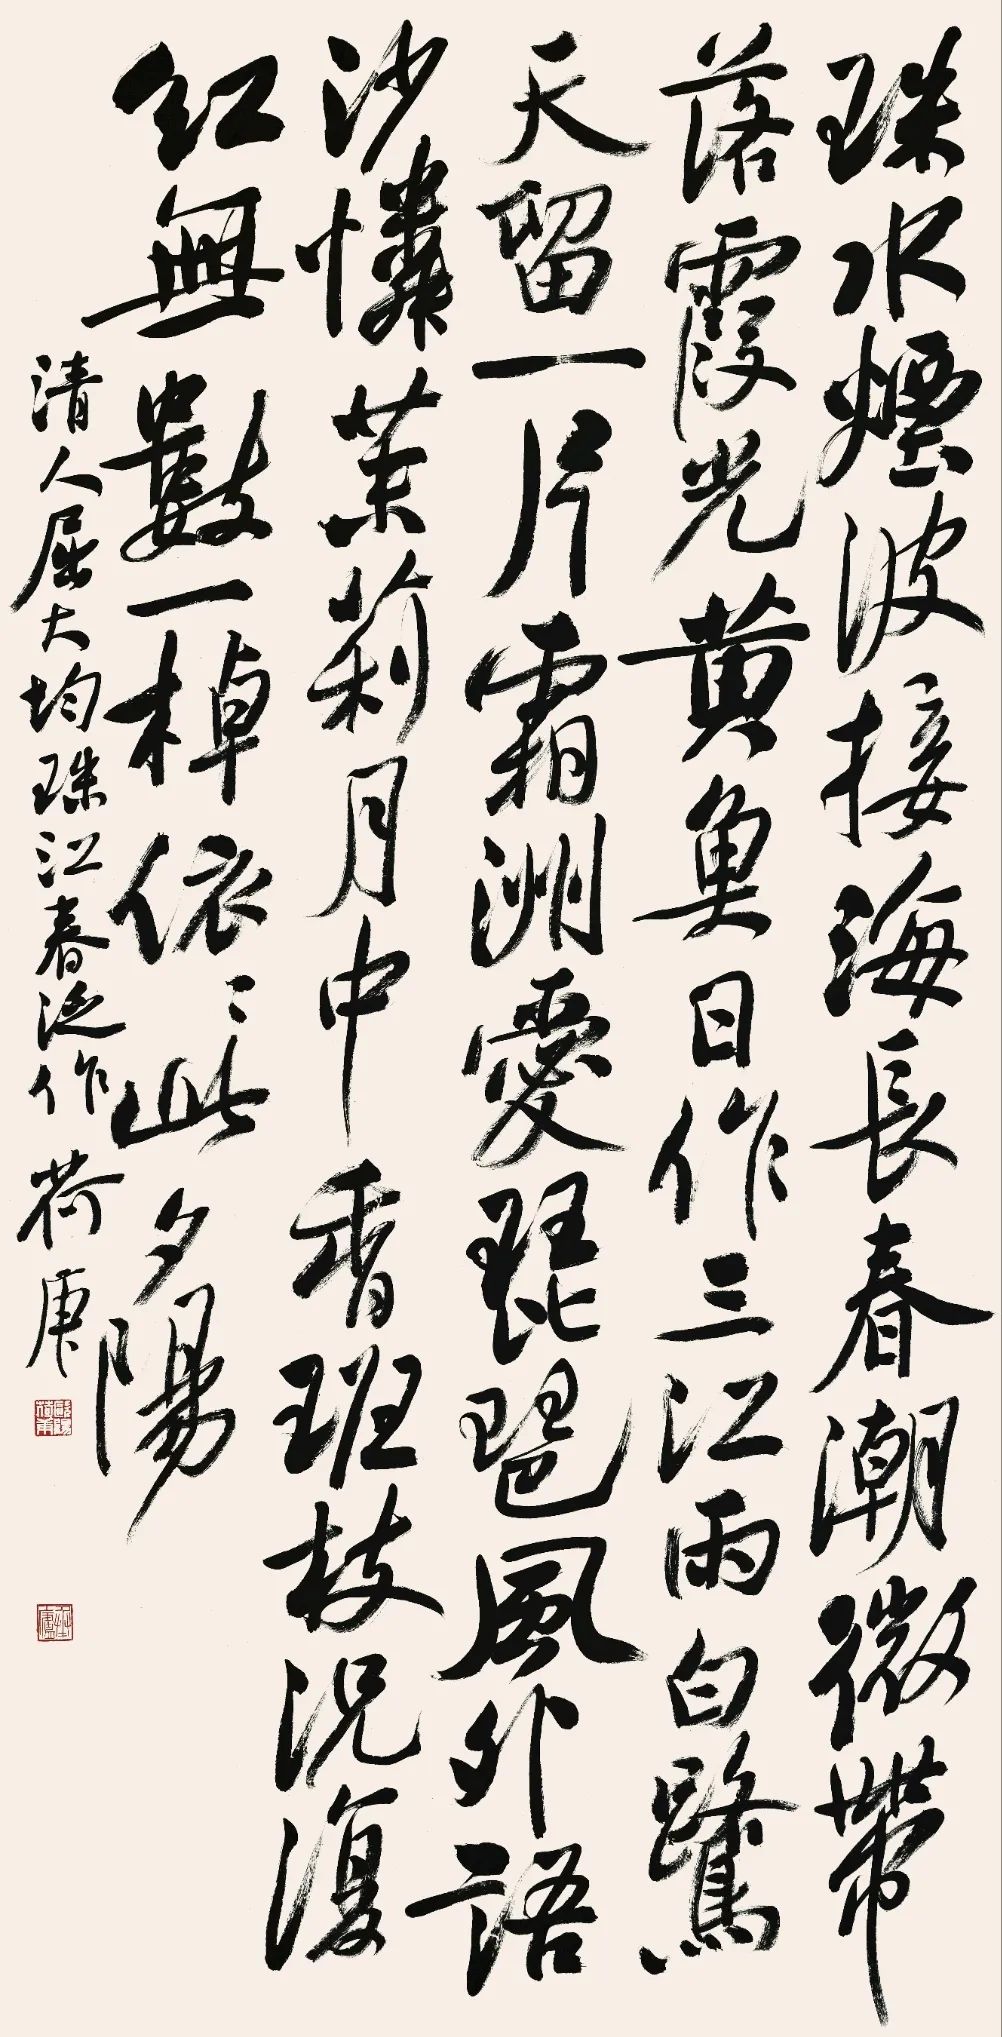 珠水煙波接海長春潮微帶
落霞光黄魚日作三江雨白鷺
天留一片霜洲愛琵琶風外語
沙憐茉莉月中香班枝況復
紅無數一棹依〻此夕陽
清人屈大均珠江春泛作荷庚